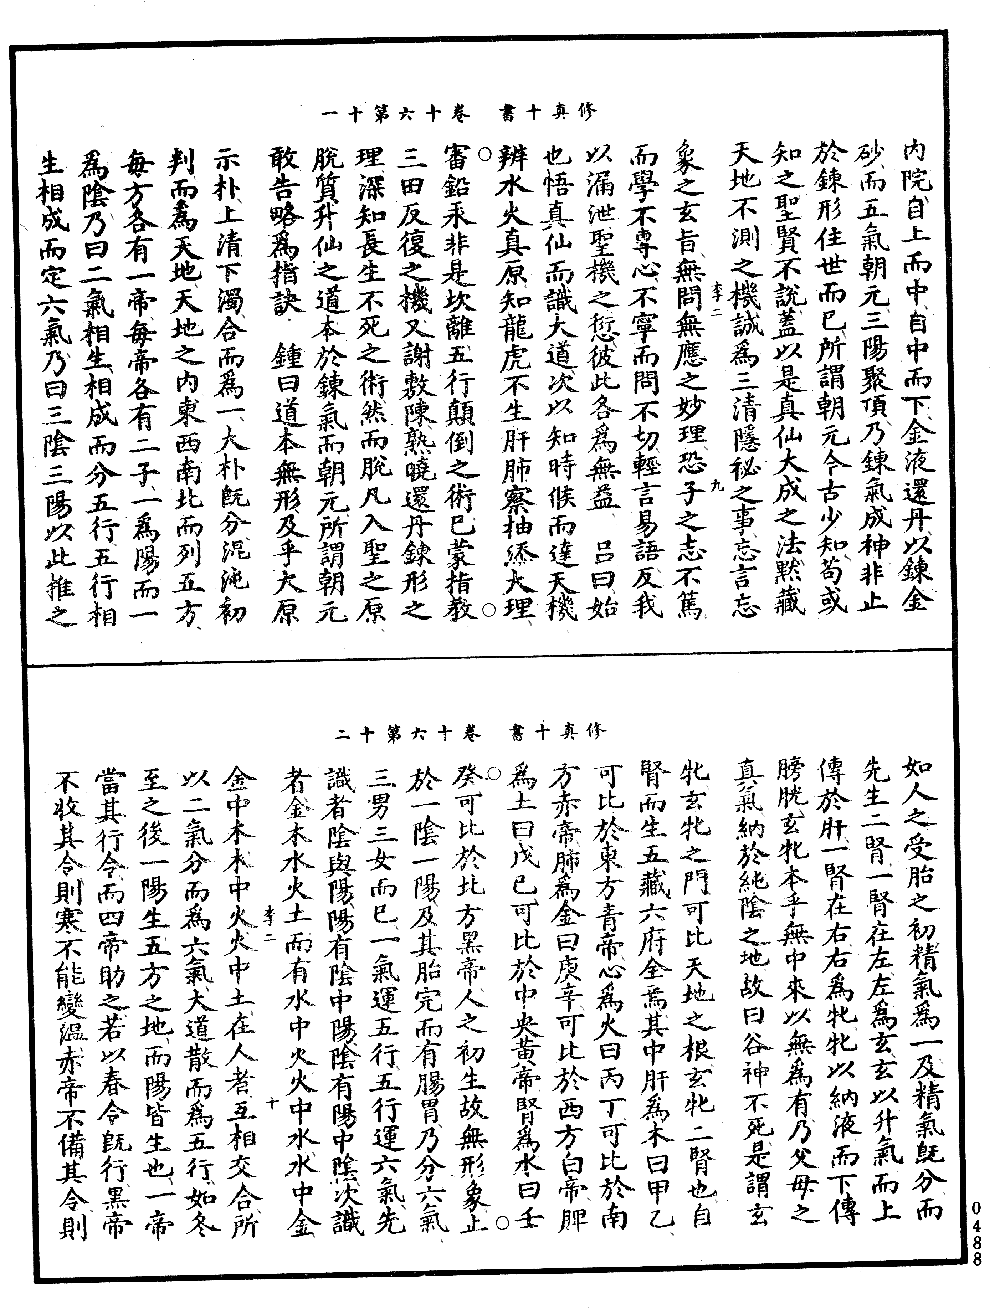 修真十書　卷十六第十一
內院自上而中自中而下金液還丹以鍊金
砂而五氣朝元三陽聚頂乃鍊氣成神非止
於鍊形住世而已所謂朝元今古少知苟或
知之聖賢不說蓋以是真仙大成之法默藏
天地不測之機誠為三清隱祕之事忘言忘
李二　九
象之玄旨無問無應之妙理恐子之志不篤
而學不專心不寧而問不切輕言易語反我
以漏泄聖機之愆彼此各為無益　呂曰始
也悟真仙而識大道次以知時候而達天機
辨水火真原知龍虎不生肝肺察抽添大理
審鉛汞非是坎離五行顛倒之術已蒙指教
三田反復之機又謝敷陳熟曉還丹鍊形之
理深知長生不死之術然而脫凡入聖之原
脫質升仙之道本於鍊氣而朝元所謂朝元
敢告略為指訣　鍾曰道本無形及乎大原
示朴上清下濁合而為一大朴既分混沌初
判而為天地天地之內東西南北而列五方
每方各有一帝每帝各有二子一為陽而一
為陰乃曰二氣相生相成而分五行五行相
生相成而定六氣乃曰三陰三陽以此推之
修真十書　卷十六第十二
如人之受胎之初精氣為一及精氣既分而
先生二腎一腎在左左為玄玄以升氣而上
傳於肝一腎在右右為牝牝以納液而下傳
膀胱玄牝本乎無中來以無為有乃父母之
真氣納於純陰之地故曰谷神不死是謂玄
牝玄牝之門可比天地之根玄牝二腎也自
腎而生五藏六府全焉其中肝為木曰甲乙
可比於東方青帝心為火曰丙丁可比於南
方赤帝肺為金曰庚辛可比於西方白帝脾
為土曰戊己可比於中央黃帝腎為水曰壬
癸可比於北方黑帝人之初生故無形象止
於一陰一陽及其胎完而有腸胃乃分六氣
三男三女而已一氣運五行五行運六氣先
識者陰與陽陽有陰中陽陰有陽中陰次識
者金木水火土而有水中火火中水水中金
李二　十
金中木木中火火中土在人者互相交合所
以二氣分而為六氣大道散而為五行如冬
至之後一陽生五方之地而陽皆生也一帝
當其行令而四帝助之若以春令既行黑帝
不收其令則寒不能變溫赤帝不備其令則
0488